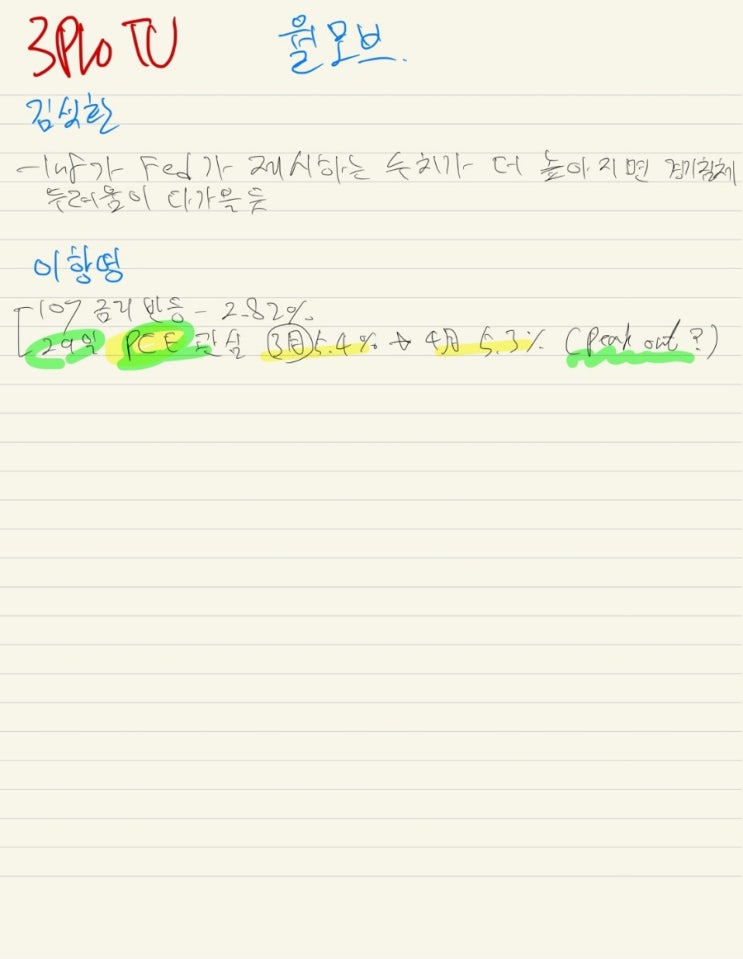 3Pro TV 월모브.
김석환
- Inf가 Fed가 제시하는 수치가 더 높아지면 경기침체
두려움이 다가올듯
이항영
- 10y 금리 반등 - 2.82%.
29일 PCE 관심 3月 5.4% → 4月 5.3% (Peak out?)